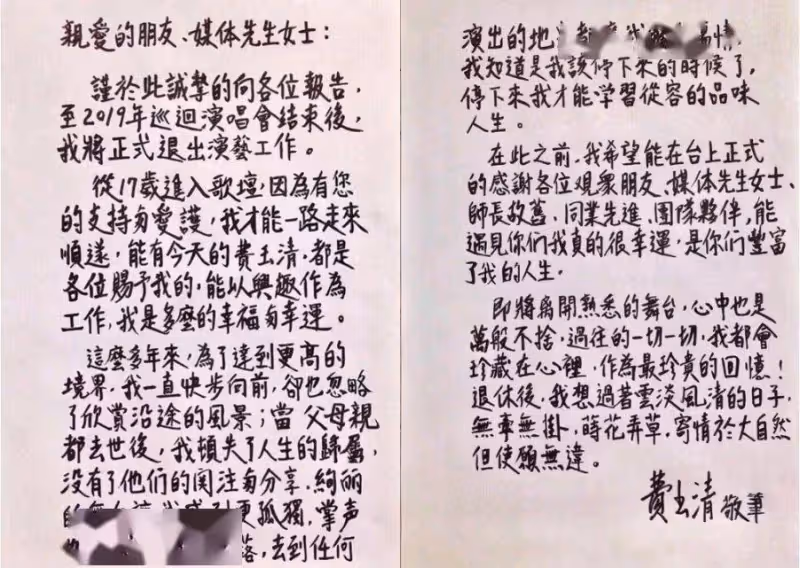 親愛的朋友、媒体先生女士：
謹於此誠摯的向各位報告，
至2019年巡迴演唱會結束後，
我將正式退出演藝工作。
從17歲進入歌壇，因為有您
的支持与愛護，我才能一路走來
順遂，能有今天的費玉清，都是
各位賜予我的，能以興趣作為
工作，我是多麼的幸福与幸運。
這麼多年來，為了達到更高的
境界，我一直快步向前，卻也忽略
了欣賞沿途的風景；當父母親
都去世後，我頓失了人生的歸屬，
沒有了他們的関注与分享，絢丽
的 更孤獨，掌声
落，去到任何
演出的地 易情，
我知道是我該停下來的時候了，
停下來我才能学習從容的品味
人生。
在此之前，我希望能在台上正式
的感謝各位观衆朋友、媒体先生女士、
師長故舊、同業先進、團隊夥伴，能
遇見你们我真的很幸運，是你们豐富
了我的人生。
即將離開熟悉的舞台，心中也是
萬般不捨，過往的一切一切，我都會
珍藏在心裡，作為最珍貴的回憶！
退休後，我想過著雲淡風清的日子，
無牽無掛，蒔花弄草，寄情於大自然
但使願無違。
費玉清 敬筆